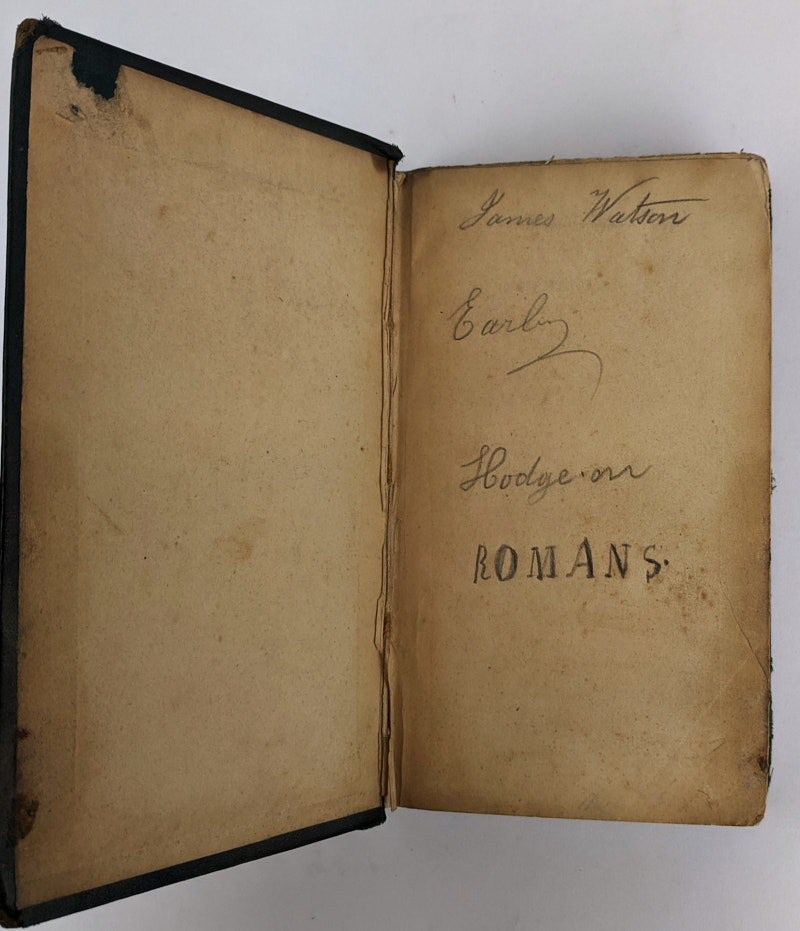 James Watson
Earby
Hodge on
ROMANS.